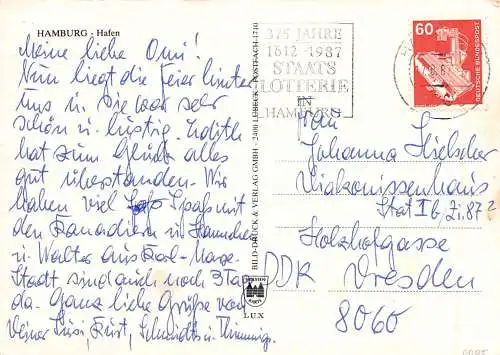 HAMBURG - Hafen
Meine liebe Omi!
Nun liegt die Feier hinter
uns u. Sie war sehr
schön u. lustig. Edith
hat zum Glück alles
gut überstanden. Wir
haben viel Spaß mit
den Kanadiern u. Hannchen
u. Walter aus Karl-Marx-
Stadt sind auch noch 3 Tage
da. Ganz liebe Grüße von
Deiner Susi, Kurt,
BILD-DRUCK & VERLAG GMBH · 2400 LÜBECK · POSTFACH 1710
LUX
375 JAHRE
1612-1987
STAATS
LOTTERIE
IN
HAMBURG
60
DEUTSCHE BUNDESPOST
Frau
Johanna Hielscher
Diakonissenhaus
Stat Ib, Zi. 87 2
Holzhofgasse
DDR Dresden
8060